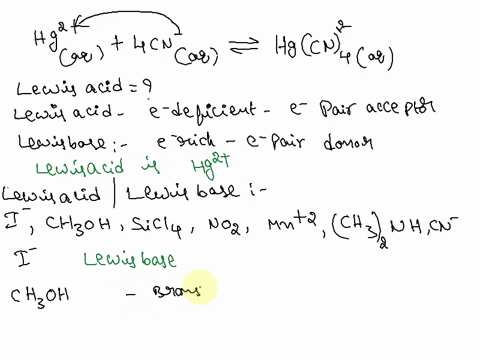 Hg²⁺(aq) + 4CN⁻(aq) ⇌ Hg(CN)₄²⁻(aq)
Lewis acid = ?
Lewis acid - e⁻ deficient - e⁻ Pair acceptor
Lewis base :- e⁻ rich - e⁻ pair donor
Lewis acid is Hg²⁺
Lewis acid | Lewis base :-
I⁻, CH₃OH, SiCl₄, NO₂, Mn⁺², (CH₃)₂NH, CN⁻
I⁻ Lewis base
CH₃OH - Brons